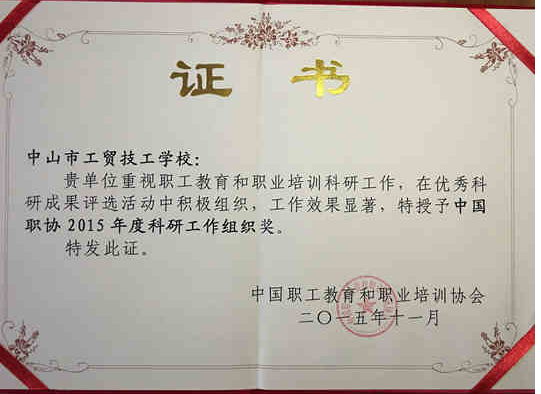 证 书
中山市工贸技工学校：
贵单位重视职工教育和职业培训科研工作，在优秀科
研成果评选活动中积极组织，工作效果显著，特授予中国
职协 2015 年度科研工作组织奖。
特发此证。
中国职工教育和职业培训协会
二〇一五年十一月